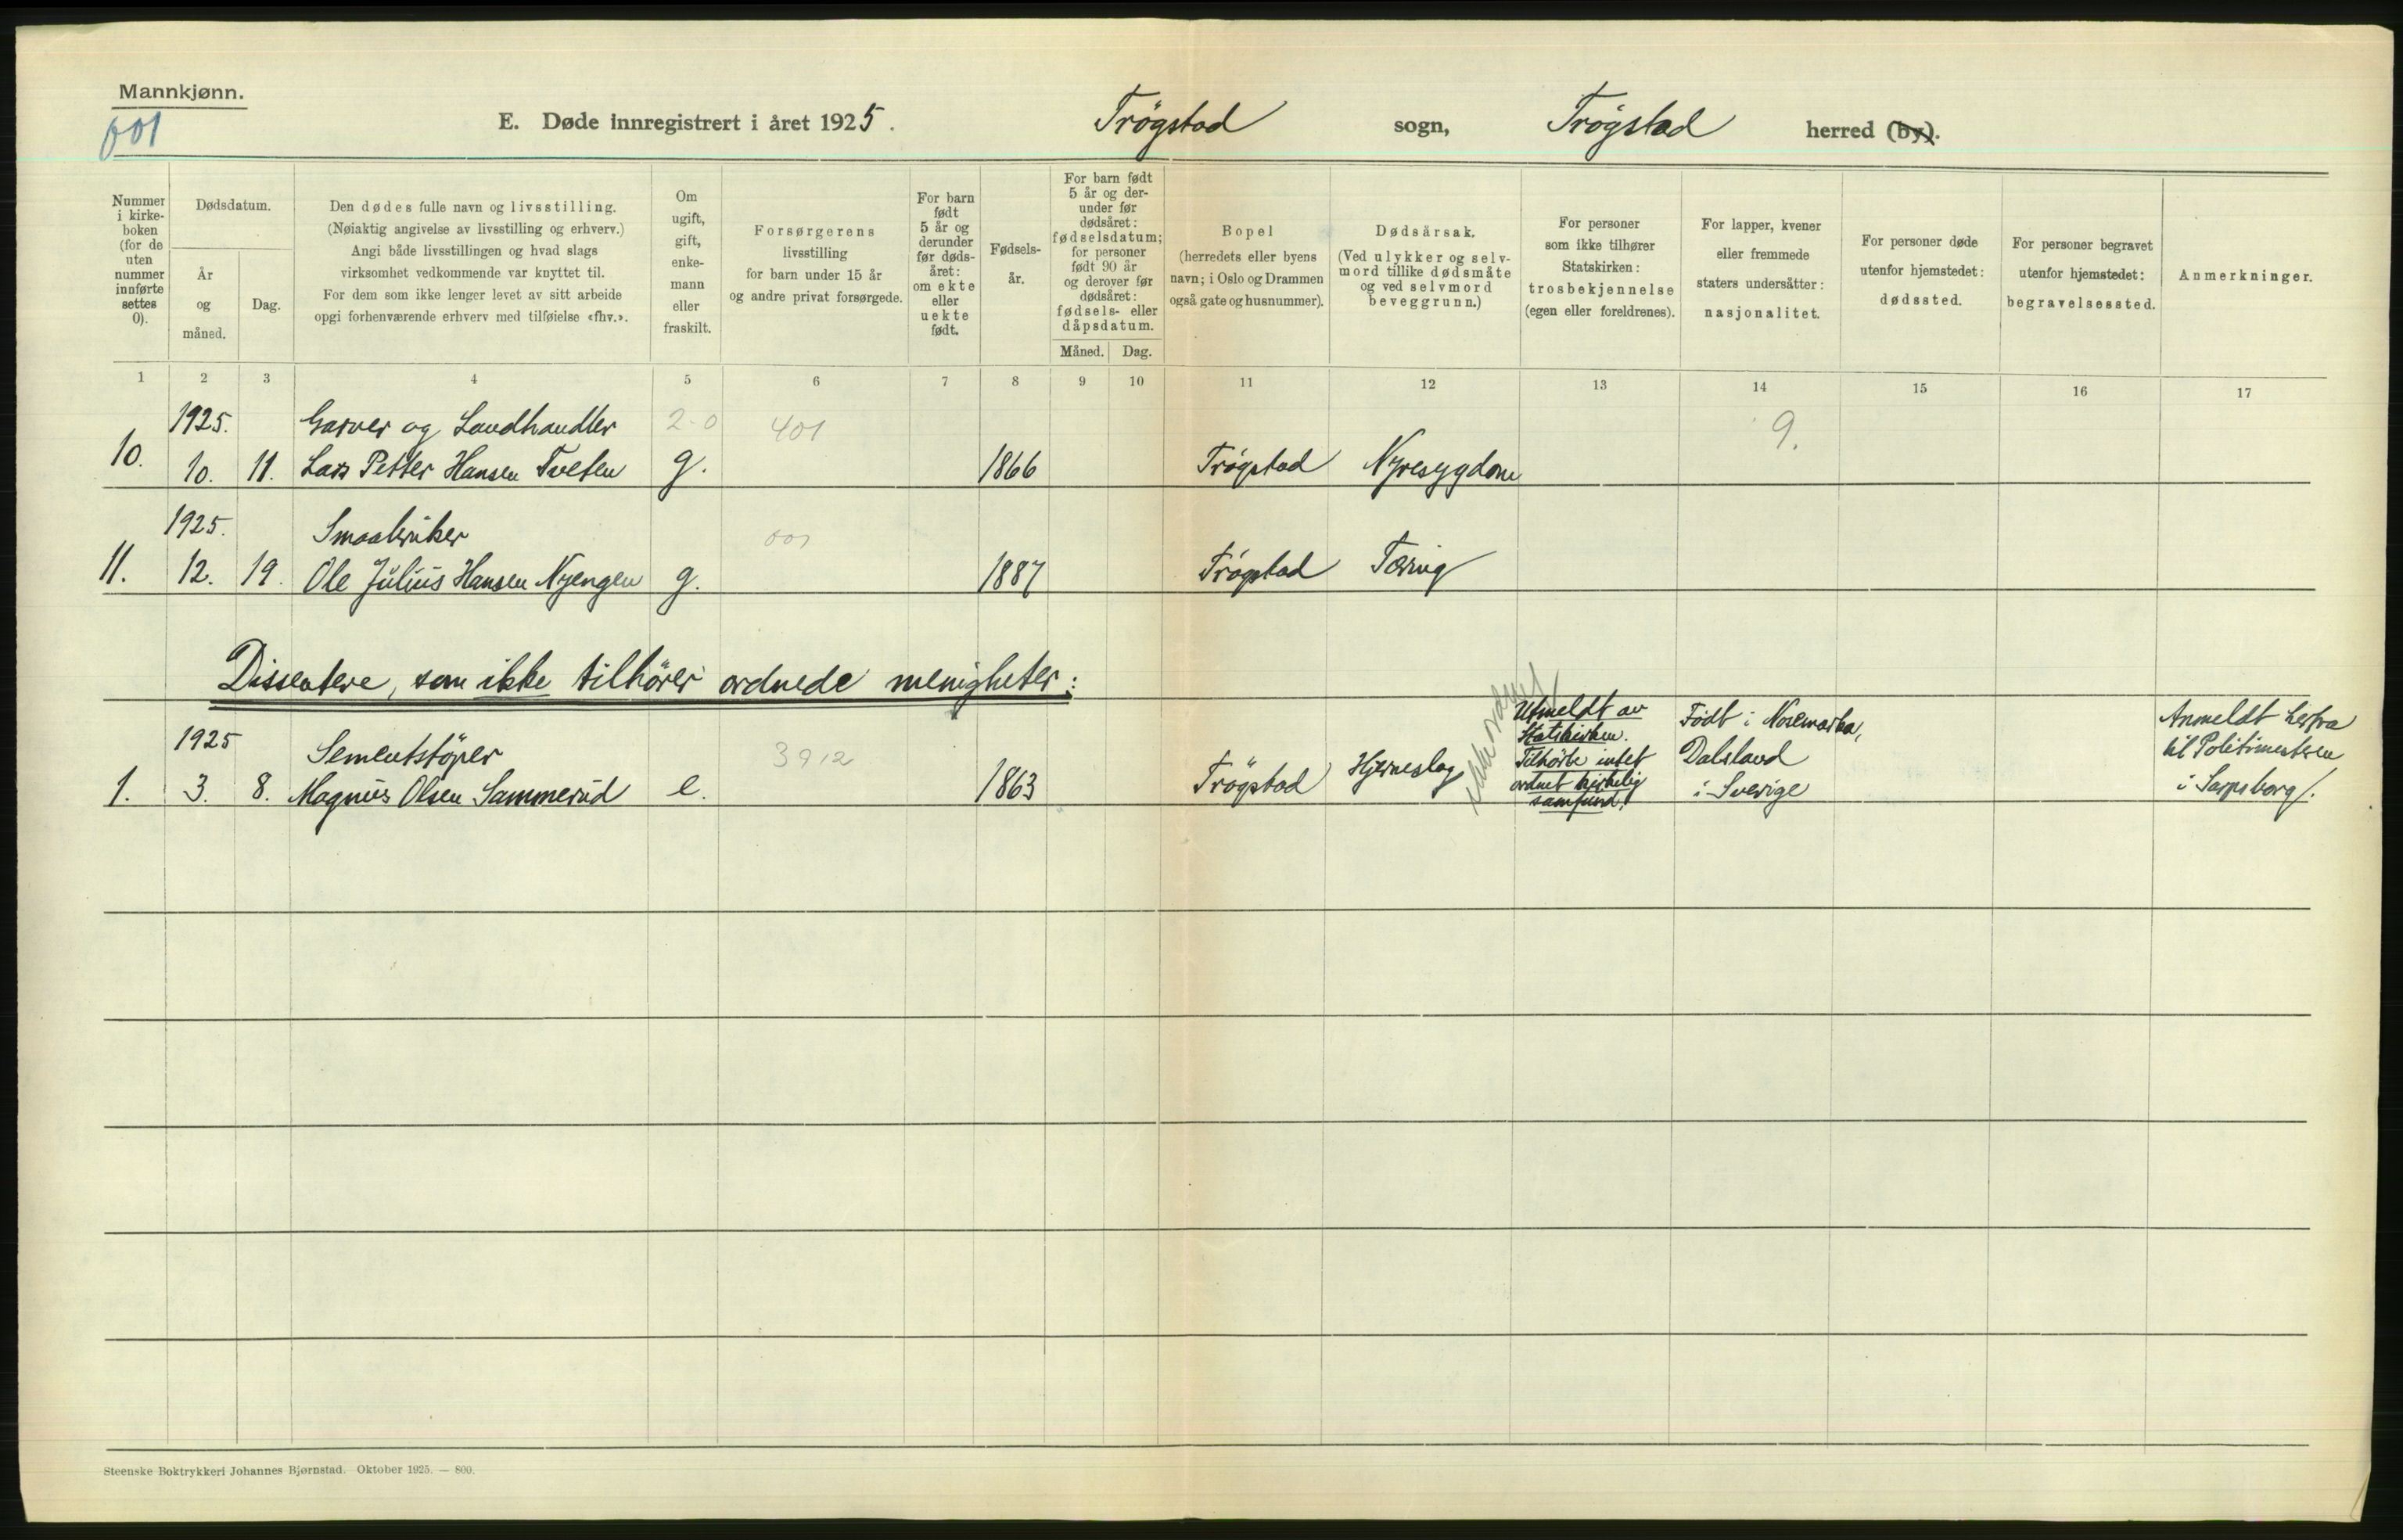 Mannkjønn.
001
E. Døde innregistrert i året 1925. Trögstad sogn, Trögstad herred (by).
Nummer i kirkeboken (for de uten nummer innførte settes 0).
Dødsdatum.
År og måned.
Dag.
Den dødes fulle navn og livsstilling.
(Nøiaktig angivelse av livsstilling og erhverv.)
Angi både livsstillingen og hvad slags
virksomhet vedkommende var knyttet til.
For dem som ikke lenger levet av sitt arbeide
opgi forhenværende erhverv med tilføielse «fhv.».
Om ugift, gift, enkemann eller fraskilt.
Forsørgerens
livsstilling
for barn under 15 år
og andre privat forsørgede.
For barn født 5 år og derunder før dødsåret: om ekte eller uekte født.
Fødselsår.
For barn født 5 år og derunder før dødsåret: fødselsdatum; for personer født 90 år og derover før dødsåret: fødsels- eller dåpsdatum.
Måned. Dag.
Bopel
(herredets eller byens
navn; i Oslo og Drammen
også gate og husnummer).
Dødsårsak.
(Ved ulykker og selvmord tillike dødsmåte og ved selvmord beveggrunn.)
For personer
som ikke tilhører
Statskirken:
trosbekjennelse
(egen eller foreldrenes).
For lapper, kvener
eller fremmede
staters undersåtter:
nasjonalitet.
For personer døde
utenfor hjemstedet:
dødssted.
For personer begravet
utenfor hjemstedet:
begravelsessted.
Anmerkninger.
1 2 3 4 5 6 7 8 9 10 11 12 13 14 15 16 17
1925. Garver og Landhandler 2-0 401 9.
10. 10. 11. Lars Petter Hansen Tveten g. 1866 Trögstad Nyresygdom
1925. Smaabruker 001
11. 12. 19. Ole Julius Hansen Nyengen g. 1887 Trögstad Tæring
Dissentere, som ikke tilhörer ordnede menigheter:
1925 Sementstöper 3912
1. 3. 8. Magnus Olsen Sammerud e. 1863 Trögstad Hjerneslag
Utmeldt av
Statskirken.
Tilhörte intet
ordnet kirkelig
samfund.
Födt i Nosemarka,
Dalsland
i Sverige
Anmeldt herfra
til Politimesteren
i Sarpsborg.
Steenske Boktrykkeri Johannes Bjørnstad. Oktober 1925. — 800.